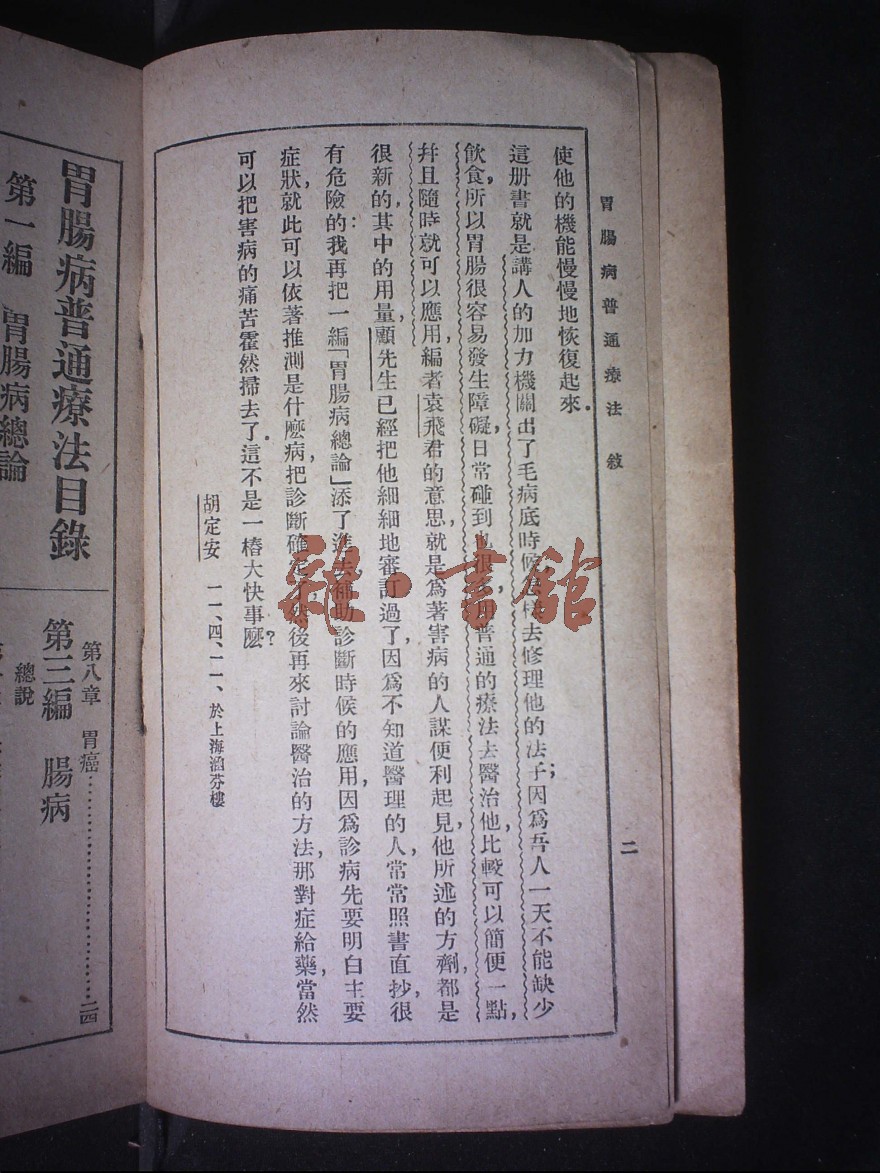 胃腸病普通療法敘 二
使他的機能慢慢地恢復起來.
這册書就是講人的加力機關出了毛病底時候,怎樣去修理他的法子;因爲吾人一天不能缺少
飲食,所以胃腸很容易發生障礙,日常碰到也很多,用普通的療法去醫治他,比較可以簡便一點,
幷且隨時就可以應用,編者袁飛君的意思,就是爲著害病的人謀便利起見,他所述的方劑,都是
很新的,其中的用量,顧先生已經把他細細地審訂過了,因爲不知道醫理的人,常常照書直抄,很
有危險的;我再把一編「胃腸病總論」添了進去,補助診斷時候的應用,因爲診病先要明白主要
症狀,就此可以依著推測是什麽病,把診斷確定了,然後再來討論醫治的方法,那對症給藥,當然
可以把害病的痛苦霍然掃去了.這不是一樁大快事麽?
胡定安 一一、四、一一、於上海涵芬樓
雜·書館
胃腸病普通療法目錄
第一編 胃腸病總論
第八章 胃癌……………………二四
第三編 腸病
總說